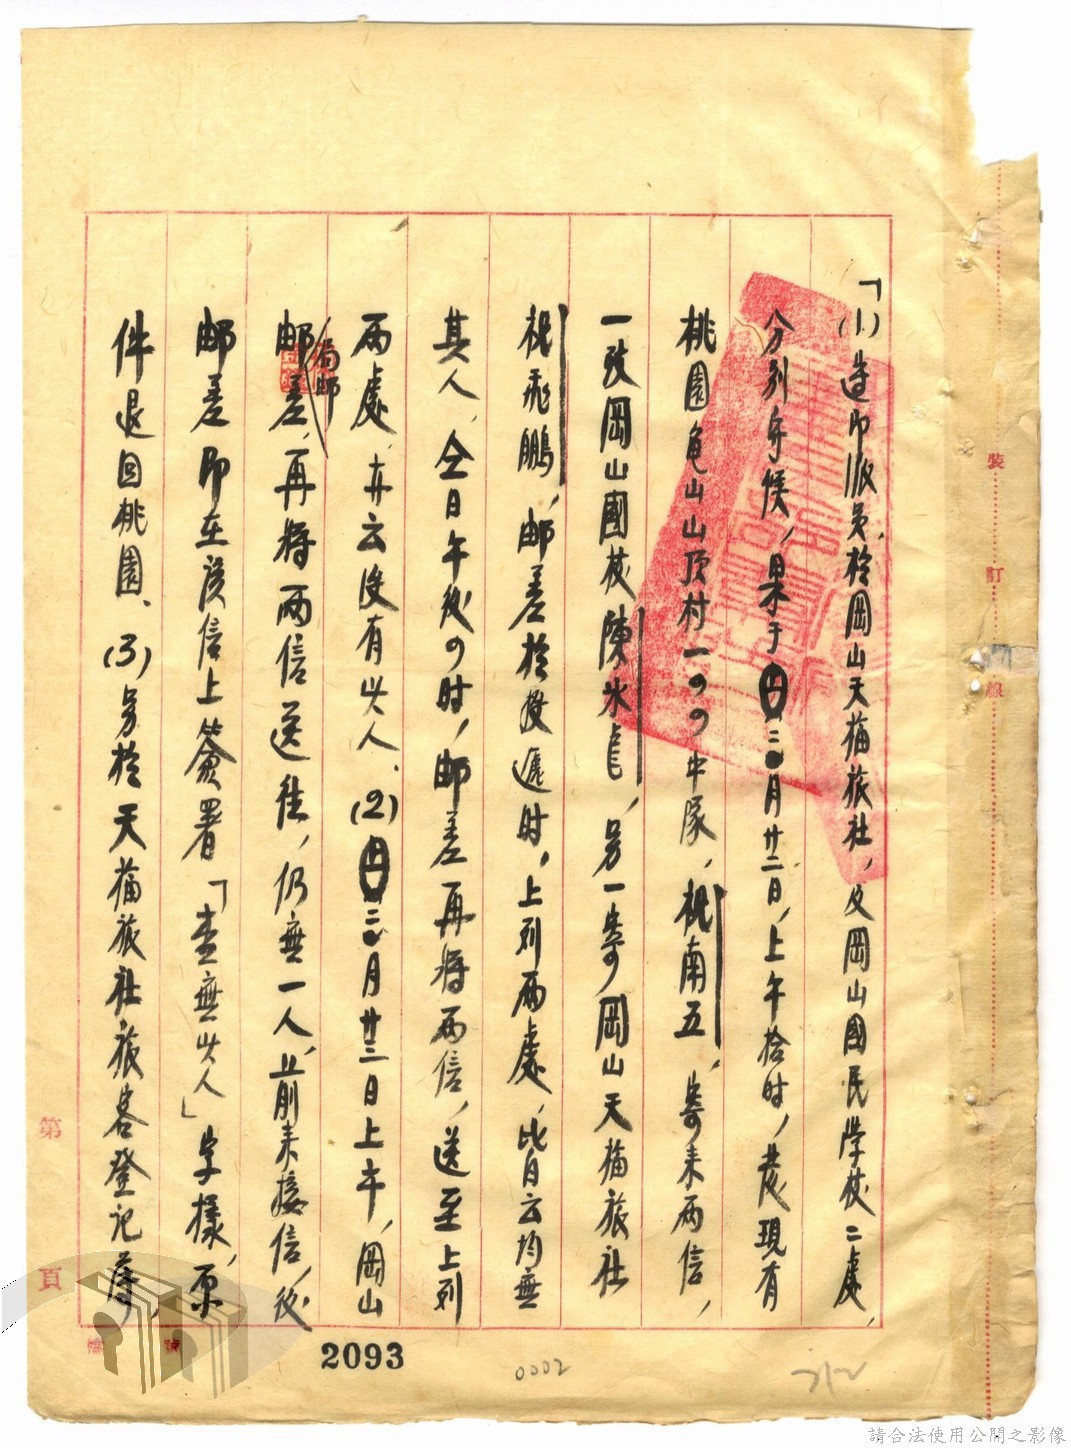 「(1)造即派員於岡山天福旅社，及岡山國民學校二處，
分別守候，果于三月廿二日，上午拾时，發現有
桃園龟山山顶村一四四中隊，祝南五，寄来两信，
一致岡山國校陳水，另一寄岡山天福旅社
祝飛鵬，邮差於投遞时，上列两處，皆云均無
其人，仝日午後四时，邮差再将两信，送至上列
两處，亦云没有此人．(2)三月廿三日上午，岡山
局邮
邮差，再将两信送往，仍無一人前来接信，後
邮差即在該信上簽署「查無此人」字樣，原
件退回桃園、(3)另於天福旅社旅客登记簿，
裝
訂
線
第
頁
檔
號
2093
0002
請合法使用公開之影像